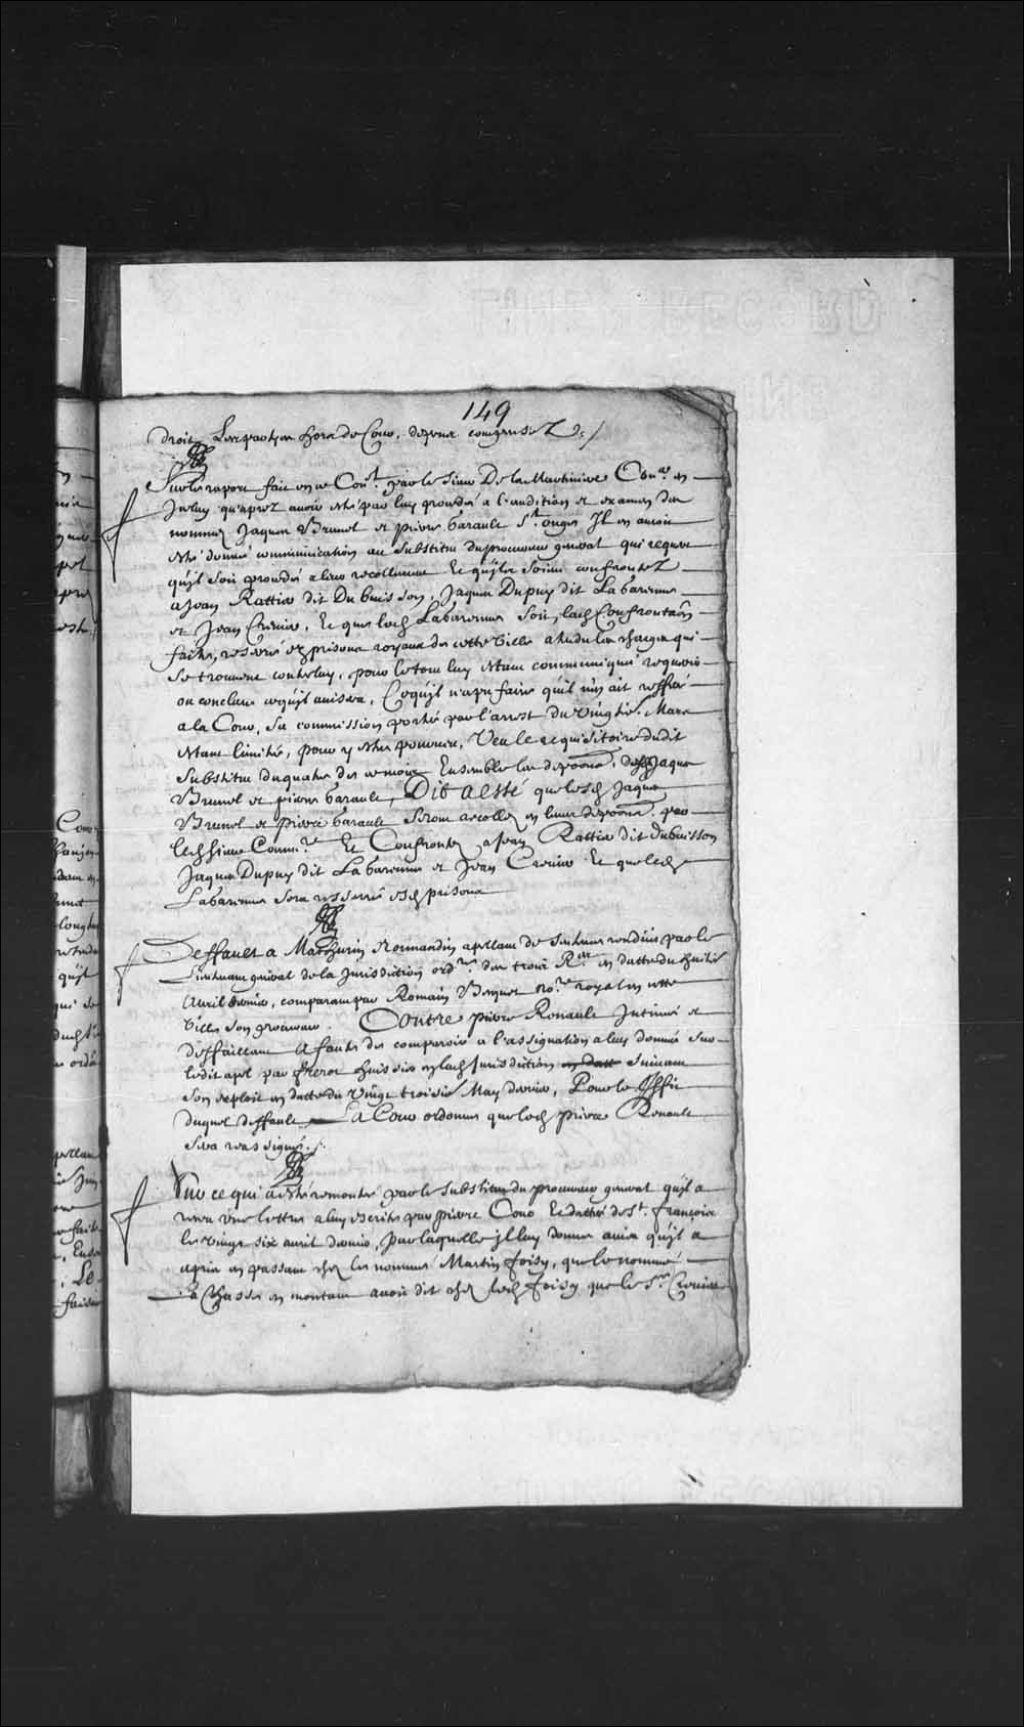 149
droit. Les parties hors de Cour, despens compensez ./
Sur le raport fait en ce Con.l par le Sieur De la Martiniere Con.er en
Jceluy qu'aprez auoir esté par luy procedé a l'audition et examen des
nommez Jaques Brunel et pierre barault St. onges Jl en auoit
esté donné communication au substitut du procureur general qui requert
quil soit procedé a leur recollement Et quils soient confrontez
a Jean Rattier dit Dubuisson, Jaques Dupuy dit La Garenne
et Jean Creuier, Et que led. Lagarenne soit, lad. Confrontaon
faite, reserré ez prisons royaux de cette Ville attendu les charges qui
se trouuent contre luy, pour le tout luy estant communiqué requerir
ou conclure ce quil auisera, Ce quil n'a pu faire quil n'en ait refferé
a la Cour, sa commission portée par l'arrest du Vingt Mars
estant limitée, pour y estre pourueu, Veu le requisitoire dudit
Substitut du quatre de ce mois Ensemble les depoons. desd. Jaques
Brunel et pierre barault, Dit a esté que lesd. Jaques
Brunel et pierre barault seront recollez en leurs depoons. par
led. Sieur Comm.re Et Confrontez a Jean Rattier dit Dubuisson
Jaques Dupuy dit La Garenne et Jean Creuier Et que led.
Lagarenne sera resserré esd. prisons
Deffault a Mathurin Normandin apellant de sentence rendüe par le
Lieutenant general de la Jurisdiction ord.re des trois R.res en datte du huitie
Auril dernier, comparant par Romain Becquet no.re royal en cette
Ville son procureur. Contre pierre Renault Jntimé et
deffaillant A faute de comparoir a l'assignation a luy donnée sur
ledit apel par huissier en lad. Jurisdiction en datte suiuant
son exploit en datte du Vingt troisie May dernier, Pour le proffit
duquel deffault La Cour ordonne que led. pierre Renault
sera reassigné ./.
Sur ce qui a esté remontré par le substitut du procureur general quil a
receu vne lettre a luy escrite par pierre Couc Et dattée de St. françois
le vingt six auril dernier, par laquelle jl luy donne auis quil a
apris en passant chez le nommé Martin foisy, que le nommé
La Chasse en montant auoit dit chez led. foisy que le Sr. Creuier